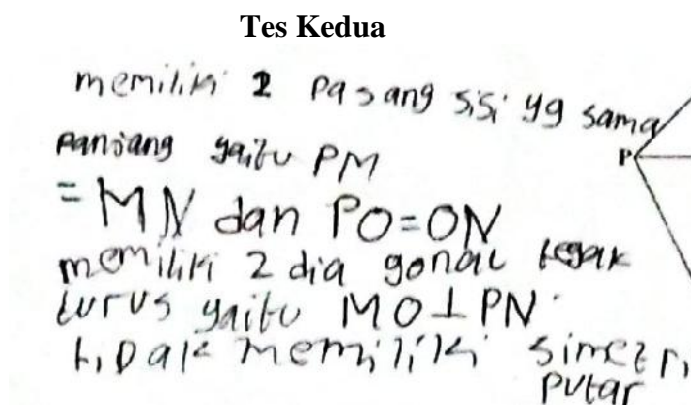 Tes Kedua
memiliki 2 pasang sisi yg sama
panjang yaitu PM
= MN dan PO=ON
memiliki 2 dia gonal tegak
lurus yaitu MO⊥PN
tidak memiliki simetri
putar
P